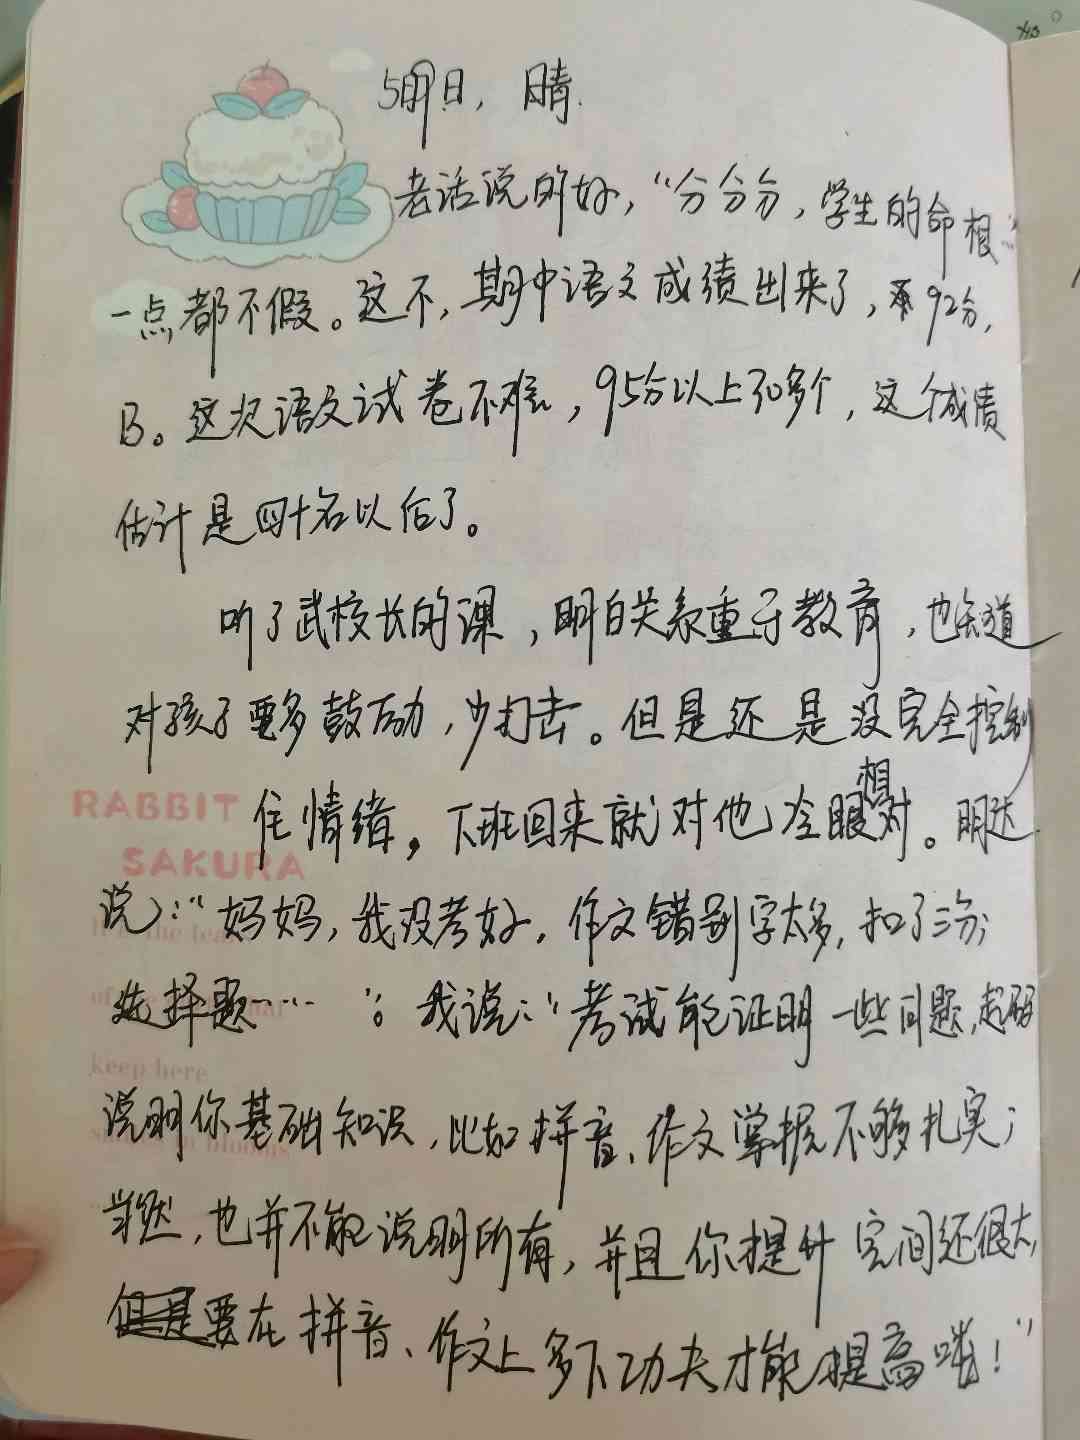 5月日，晴.
老话说的好，“分分分，学生的命相”
一点都不假。这不，期中语文成绩出来了，92分，
B。这次语文试卷不难，95分以上30多个，这个成绩
估计是四十名以后了。
听了武校长的课，明白关系重于教育，也知道
对孩子要多鼓励，少打击。但是还是没完全控制
RABBIT
SAKURA
住情绪，下班回来就对他冷眼相对。明达
说：“妈妈，我没考好，作文错别字太多，扣了三分；
选择题……”；我说：“考试能证明一些问题，起码
keep here
说明你基础知识，比如拼音、作文掌握不够扎实；
当然，也并不能说明所有，并且你提升空间还很大，
要在拼音、作文上多下功夫才能提高哦！”